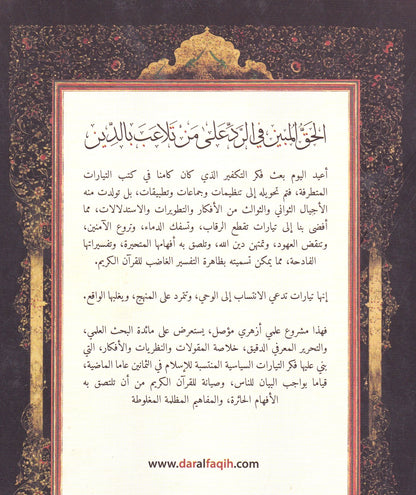 الحَقُّ المُبِين في الرَدِّ عَلى مَن تَلاعَبَ بالدِّين
أعيد اليوم بعث فكر التكفير الذي كان كامنا في كتب التيارات
المتطرفة، فتم تحويله إلى تنظيمات وجماعات وتطبيقات، بل تولدت منه
الأجيال الثواني والثوالث من الأفكار والتطويرات والاستدلالات، مما
أفضى بنا إلى تيارات تقطع الرقاب، وتسفك الدماء، وتروع الآمنين،
وتنقض العهود، وتمتهن دين الله، وتلصق به أفهامها المتحيرة، وتفسيراتها
الفادحة، مما يمكن تسميته بظاهرة التفسير الغاضب للقرآن الكريم.
إنها تيارات تدعي الانتساب إلى الوحي، وتتمرد على المنهج، ويغلبها الواقع.
فهذا مشروع علمي أزهري مؤصل، يستعرض على مائدة البحث العلمي،
والتحرير المعرفي الدقيق، خلاصة المقولات والنظريات والأفكار، التي
بني عليها فكر التيارات السياسية المنتسبة للإسلام في الثمانين عاما الماضية،
قياما بواجب البيان للناس، وصيانة للقرآن الكريم من أن تلتصق به
الأفهام الحائرة، والمفاهيم المظلمة المغلوطة
www.daralfaqih.com